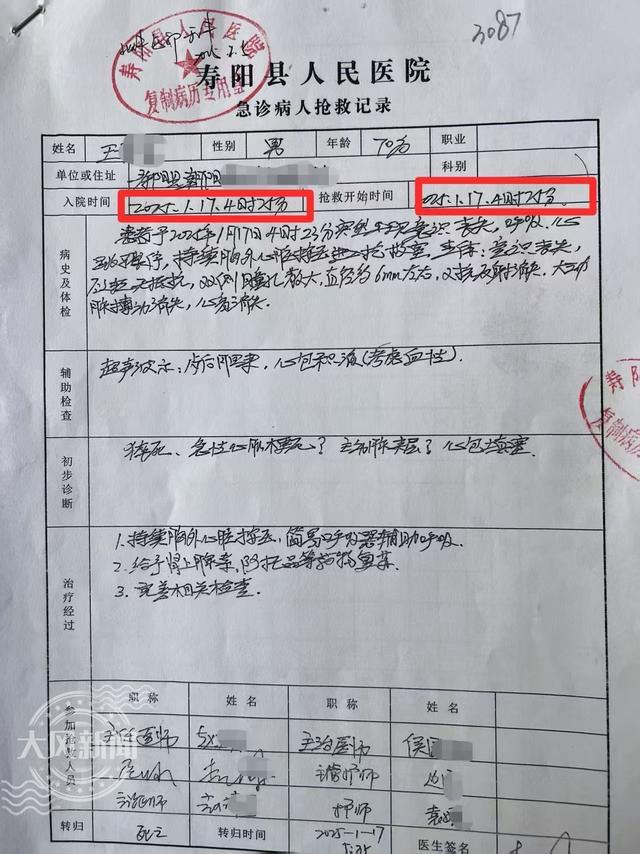 3087
寿阳县人民医院
复制病历专用章
寿阳县人民医院
急诊病人抢救记录
姓名 王 性别 男 年龄 70岁 职业
单位或住址 寿阳县朝阳 科别
入院时间 2025.1.17.4时25分 抢救开始时间 025.1.17.4时25分.
病史及体检
患者于2025年1月17日4时23分突然出现意识丧失,呼吸、心
持续胸外心脏按压进入抢救室,查体:意识丧失,
双侧瞳孔散大,直径约6mm左右,对光反射消失,大动
脉搏动消失,心音消失。
辅助检查
超声提示:心包积液(考虑血性).
初步诊断
猝死、急性心肌梗死?主动脉夹层?心包填塞
治疗经过
1.持续胸外心脏按压,简易呼吸器辅助呼吸.
2.给予肾上腺素,阿托品等药物复苏.
3.完善相关检查.
参加抢救人员
职称 姓名 职称 姓名
主任医师 主治医师 侯
主管护师
护师
转归 死亡 转归时间 2025-1-17
5:35 医生签名
大风新闻
寿阳
复制病历专